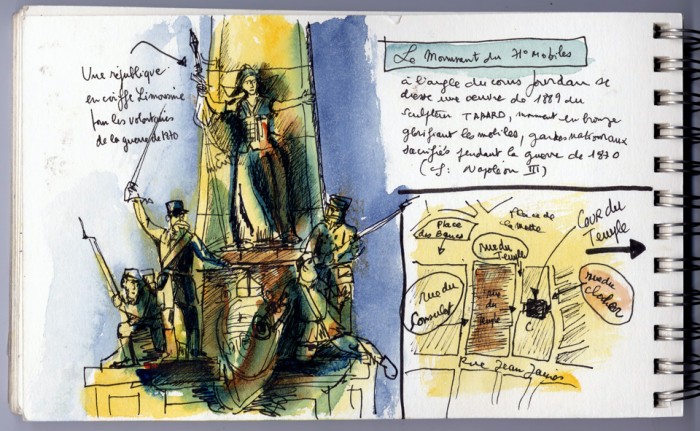 Une république
en coiffe Limousine
pour les volontaires
de la guerre de 1870
Le Monument du 71e Mobiles
à l'angle du cours Jourdan se
dresse une oeuvre de 1889 du
sculpteur TADARD, monument en bronze
glorifiant les mobiles, gardes nationaux
sacrifiés pendant la guerre de 1870
(cf: Napoléon III)
Place
des Bancs
Place de
la Motte
rue du
Temple
Cour du
Temple
rue du
Consulat
rue du
Clocher
Rue Jean Jaurès